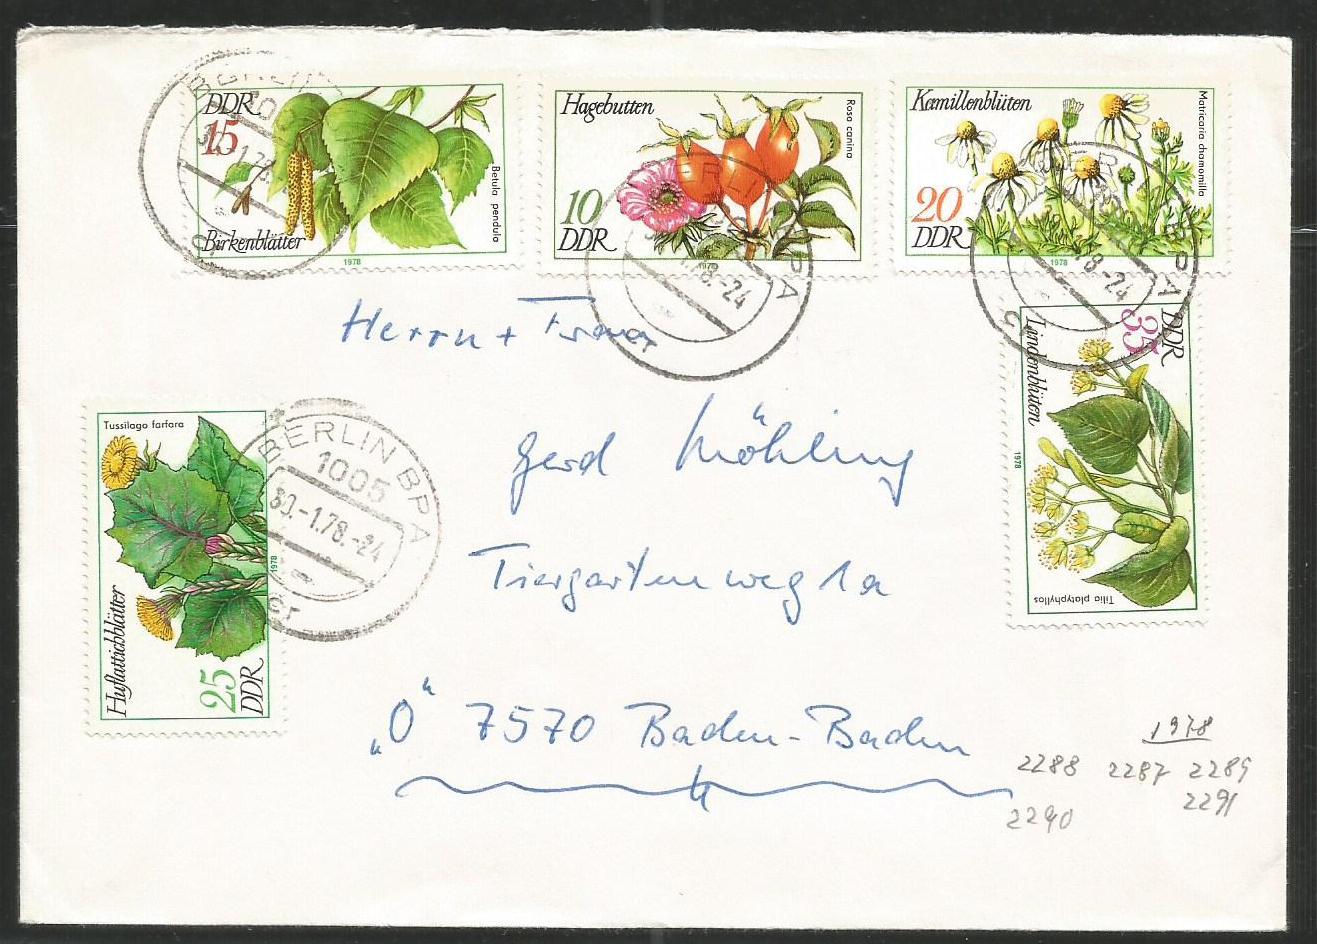 DDR
15
Birkenblätter
Betula pendula
1978
Hagebutten
10
DDR
Rosa canina
1978
Kamillenblüten
20
DDR
Matricaria chamomilla
1978
BERLIN BPA
.78.-24
BPA
8.-24
Herrn + Frau
Gerd Möhling
Tiergartenweg 1a
„O“ 7570 Baden-Baden
35
DDR
Lindenblüten
1978
Tilia platyphyllos
Tussilago farfara
Huflattichblätter
25
DDR
1978
BERLIN BPA
1005
30.-1.78.-24
cr
1978
2288 2287 2289
2291
2290